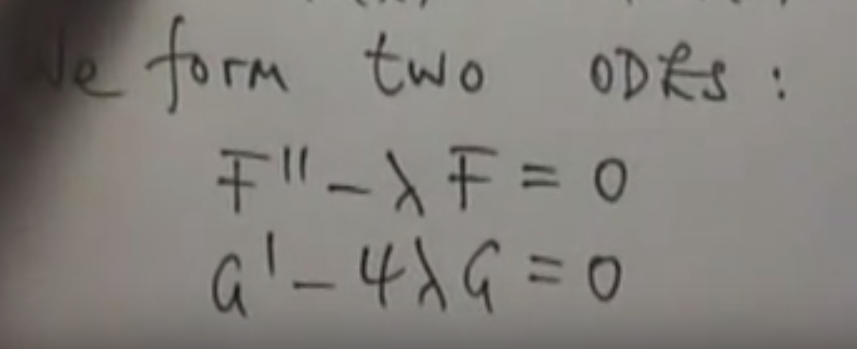 We form two ODEs :
F'' - λ F = 0
G' - 4λ G = 0